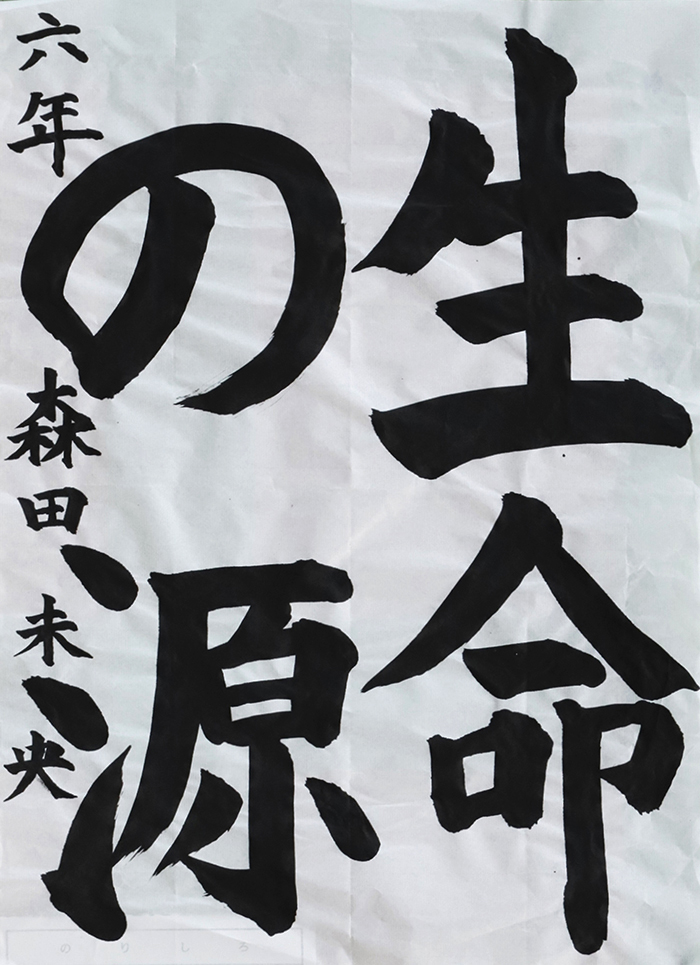 生命
の源
六年 森田未央
のりしろ